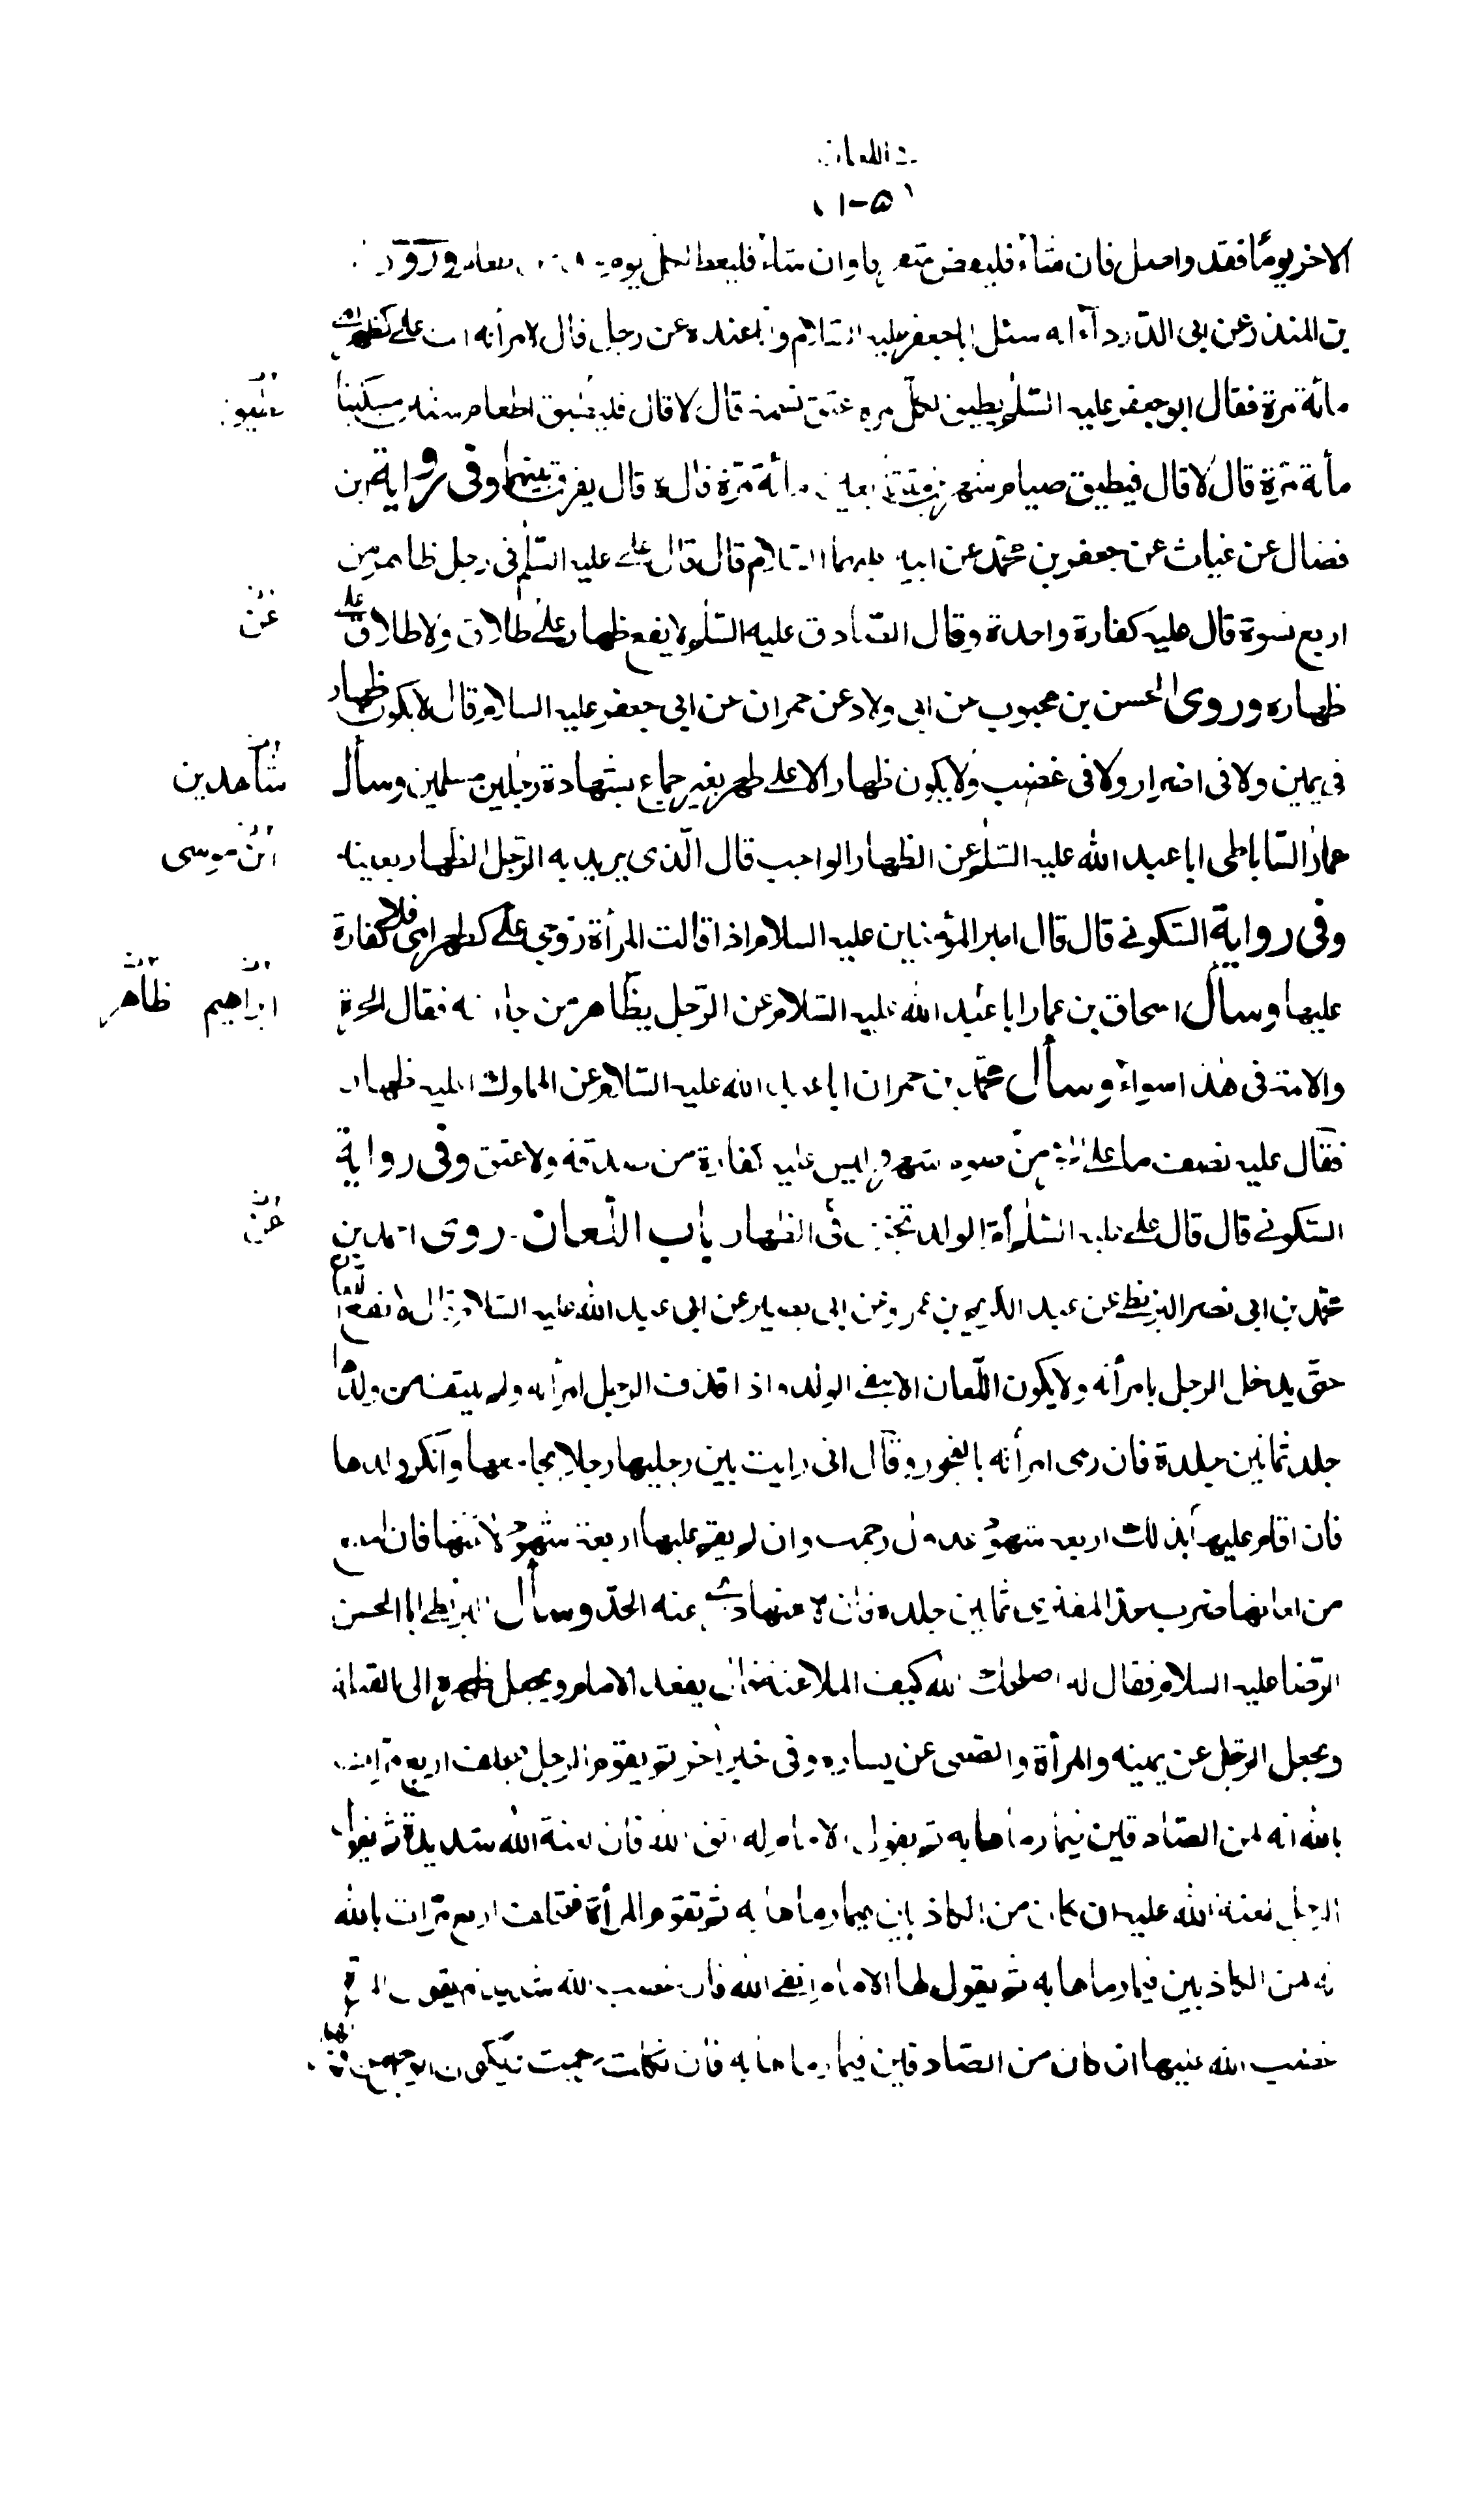 اللعان
١٠٥
الاخر يوما فقد واصل فان شاء فليعوض متفرقا وان شاء فليعط لكل يوم
بن المنذر عن ابى الدرداء انه سئل ابا جعفر عليه السلام وانا عنده عن رجل قال لامرأته انت على كظهر
مائة مرة فقال ابو جعفر عليه السلام يطيق لكل مرة عتق نسمة قال لا قال فليطيق اطعام ستين مسكينا
مأة مرة قال لا قال فيطيق صيام شهرين متتابعين مائة مرة قال لا قال يفرق بينهما وفى رواية بن
فضال عن غياث عن جعفر بن محمد عن ابيه عليهما السلام قال قال على عليه السلم فى رجل ظاهر من
عن
اربع نسوة قال عليه كفارة واحدة وقال الصادق عليه السلم لا يقع ظهار على طلاق ولا طلاق على
ظهاره وروى الحسن بن محبوب عن ابى ولاد عن حمران عن ابى جعفر عليه السلام قال لا يكون ظهار
فى يمين ولا فى اضرار ولا فى غضب ولا يكون ظهار الا على طهر بغير جماع بشهادة رجلين مسلمين وسأل
شاهدين
عمار الساباطى ابا عبد الله عليه السلم عن الظهار الواجب قال الذى يريد به الرجل الظهار بعينه
ابن موسى
وفى رواية السكونى قال قال امير المؤمنين عليه السلام اذا قالت المرأة زوجى على كظهر امى فلا كفارة
عليها وسأل اسحاق بن عمار ابا عبد الله عليه السلام عن الرجل يظاهر من جاريته فقال الحرة
ابراهيم ظاهر
والامة فى هذا سواء وسأل محمد بن حمران ابا عبد الله عليه السلام عن المملوك اعليه ظهار
فقال عليه نصف ما على الحر من صوم شهر وليس عليه كفارة من صدقة ولا عتق وفى رواية
السكونى قال قال على عليه السلم ام الولد تجزى فى الظهار باب اللعان روى احمد بن
عن
محمد بن ابى نصر البزنطى عن عبد الكريم بن عمرو عن ابى بصير عن ابى عبد الله عليه السلام قال لا يقع اللعان
حتى يدخل الرجل بامرأته ولا يكون اللعان الا بنفى الولد واذا قذف الرجل امرأته ولم ينتف من ولدها
جلد ثمانين جلدة فان رمى امرأته بالفجور وقال انى رايت بين رجليها رجلا يجامعها وانكر ولدها
فان اقام عليها بذلك اربعة شهود عدول رجمت وان لم يقم عليها اربعة شهود لاعنها فان امتنع
من لعانها ضرب حد المفترى ثمانين جلدة فان لاعنها درئ عنه الحد وسأل البزنطى ابا الحسن
الرضا عليه السلام فقال له اصلحك الله كيف الملاعنة قال يقعد الامام ويجعل ظهره الى القبلة
ويجعل الرجل عن يمينه والمرأة والصبى عن يساره وفى خبر اخر ثم يقوم الرجل فيحلف اربع مرات
بالله انه لمن الصادقين فيما رماها به ثم يقول الامام له اتق الله فان لعنة الله شديدة ثم يقول
الرجل لعنة الله عليه ان كان من الكاذبين فيما رماها به ثم تقوم المرأة فتحلف اربع مرات بالله
انه لمن الكاذبين فيما رماها به ثم يقول لها الامام اتقى الله فان غضب الله شديد ثم تقول المرأة
غضب الله عليها ان كان من الصادقين فيما رماها به فان نكلت رجمت ويكون الرجم من